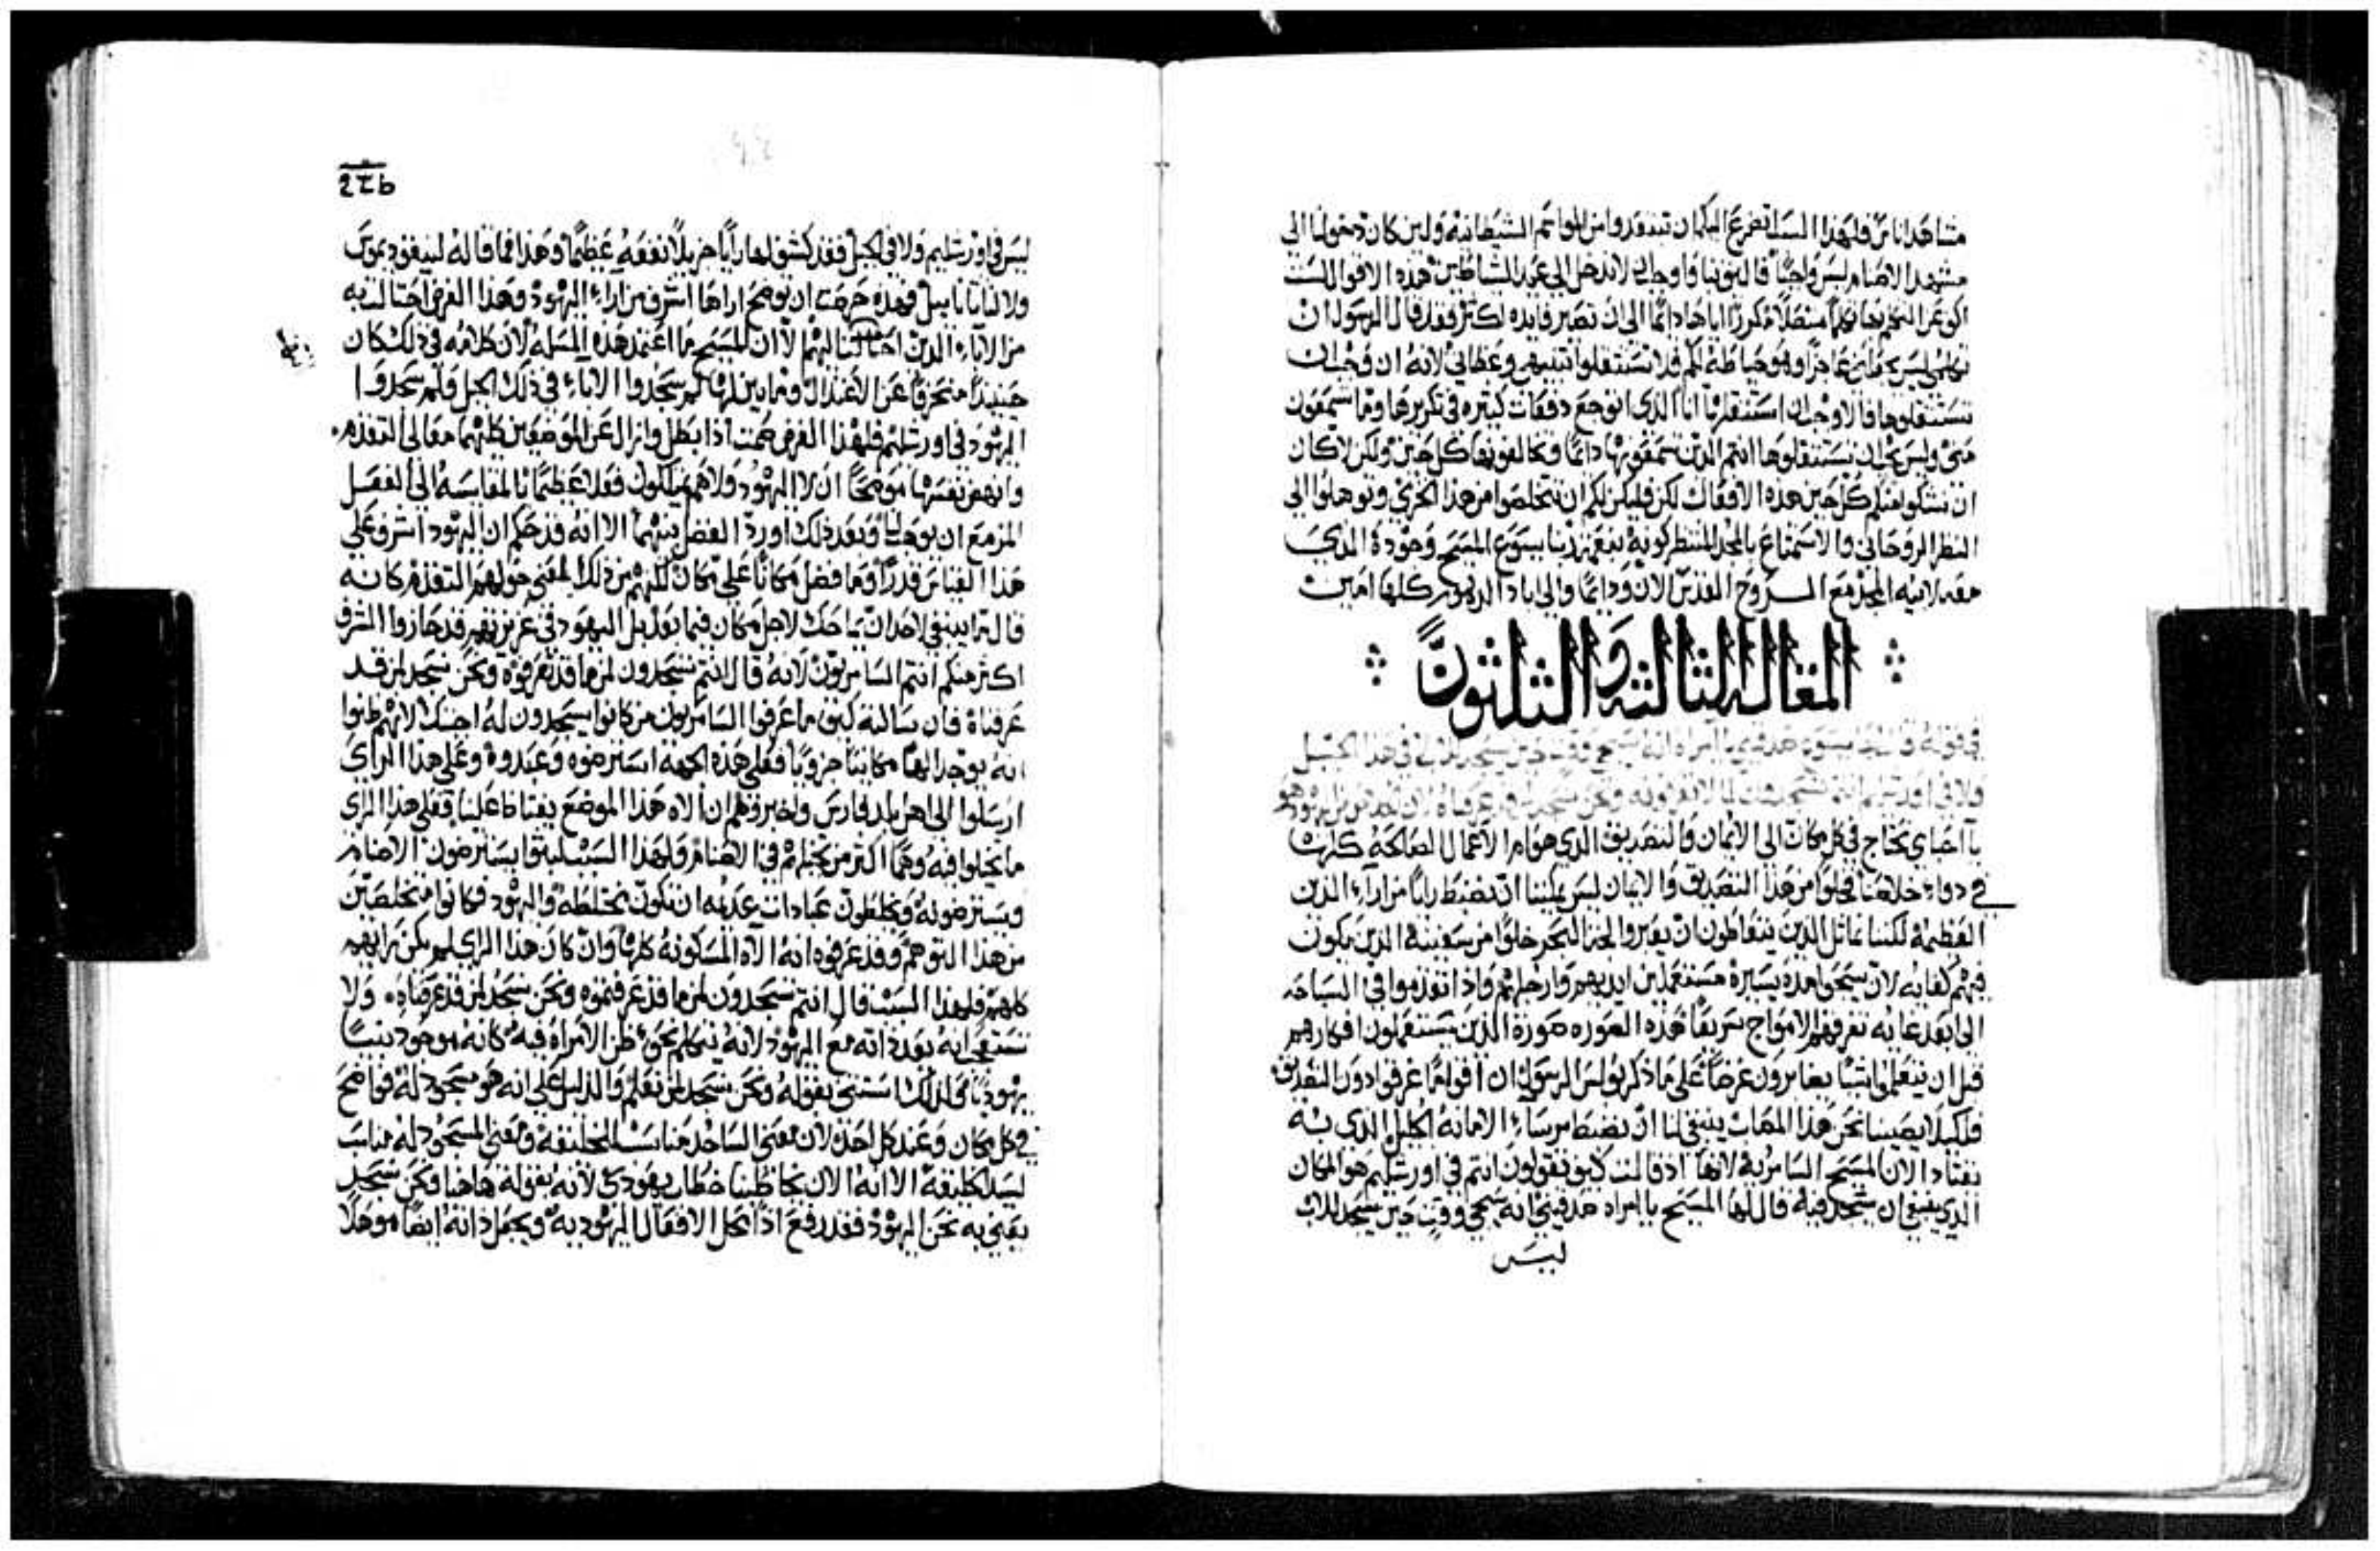 مشاهدا ناس فلهذا السبب اتضرع اليكم ان تبتعدوا من المواتم الشيطانيه ولين كان دخولنا الى
مشهد الاصنام ليس واجبا فاليق بنا واوجب الا ندخل الى عيد الشياطين هذه الاقوال لست
اكف عن التكلم بها تكلما متصلا مكررا اياها دايما الى ان تصير فايده اكثر فقد قال الرسول ان
تستثقلوها فالاوجب ان استثقلها انا الذي اتوجع دفعات كثيره في تكريرها وما تسمعون
مني وليس يجب ان تستثقلوها انتم الذين تسمعونها دايما وتخالفونها كل حين ولكن لا كان
ان نشكو منكم كل حين هذه الافعال لكن فليكن لكم ان تتخلصوا من هذا الخزي وتوهلوا الى
النظر الروحاني والاستمتاع بالمجد المنتظر كونه بنعمة ربنا يسوع المسيح وجوده الذي
معه لابيه المجد مع الروح القدس الان ودايما والى اباد الدهور كلها امين
المقاله الثالثه والثلثون
في قوله قال لها يسوع صدقيني يا امراه انه سيجي وقت حين يسجد للاب لا في هذا الجبل
ولا في اورشليم انتم تسجدون لما لا تعرفونه ونحن نسجد لمن قد عرفناه لان الخلاص من اليهود هو
يا احباي نحتاج في كل مكان الى الايمان والتصديق الذي هو ام الاعمال الصالحه كلها
في دواء خلاصنا فخلوا من هذا التصديق والايمان ليس يمكننا ان نضبط رايا من اراء الدين
العظيمه لكننا نماثل الذين يتعاطون ان يعبروا لجة البحر خلوا من سفينة الذين يكون
فيهم كفايه لان يسبحوا مدة يسيره مستعملين ايديهم وارجلهم واذا تقدموا في السباحه
الى ابعد غايه تغرقهم الامواج سريعا هذه الصوره صورة الذين يستعملون افكارهم
قبل ان يتعلموا شيا يصابرون غرقا على ما ذكر بولس الرسول ان اقواما غرقوا دون التصديق
فلكيلا يصيبنا نحن هذا المصاب ينبغي لنا ان نضبط مرساء الامانه الجليل الذي به
يقتاد الان المسيح السامريه لانها اذ قالت كيف تقولون انتم في اورشليم هو المكان
الذي ينبغي ان يسجد فيه قال لها المسيح يا امراه صدقيني انه سيجي وقت حين يسجد للاب
ليس
226
ليس في اورشليم ولا في الجبل فقد كشف لها رايا جزيلا نفعه عظيما وهذا فما قاله لنيقوديموس
ولا لناثانايل فهذه حرصت ان توضح اراها اشرف من اراء اليهود وهذا الغرض احتالت به
من الاباء الذين احتالت اليهم الا ان المسيح ما اعتمد هذه المسله لان كلامه في ذلك كان
حينيذ منحرفا عن الاعتدال وما بين لها لم سجدوا الاباء في ذلك الجبل ولم سجدوا
اليهود في اورشليم فلهذا الغرض صمت اذا بطل وازال عن الموضعين كليهما معالي التقدم
وانهض نفسها موضحا ان لا اليهود ولا هم يملكون فعلا عظيما بالمقايسه الى الفضل
المزمع ان يوهب وبعد ذلك اورد الفصل بينهما الا انه قد حكم ان اليهود اشرف على
هذا القياس قدرا وما فضل مكانا على مكان لكنهم من ذلك المعنى خولهم التقدم كانه
قال ما ينبغي لاحد ان يماحك لاجل مكان فيما بعد بل اليهود في غريزتهم قد حازوا الشرف
اكثر منكم انتم السامريون لانه قال انتم تسجدون لمن ما قد تعرفوه ونحن نسجد لمن قد
عرفناه فان سالته كيف ما عرفوا السامريون من كانوا يسجدون له اجبتك لانهم ظنوا
انه يوجد الها مكانيا جزويا فعلى هذه الجهة استرضوه وعبدوه وعلى هذا الراي
ارسلوا الى اهل بلد فارس واخبروهم ان الاه هذا الموضع يغتاظ علينا فعلى هذا الراي
ما تخيلوا فيه وهما اكثر من تخيلهم في الاصنام ولهذا السبب لبثوا يسترضون الاصنام
ويسترضونه ويخلطون عبادات عديمه ان تكون مختلطه واليهود فكانوا متخلصين
من هذا التوهم وقد عرفوه انه الاه المسكونه كلها وان كان هذا الراي لم يكن رايهم
كلهم فلهذا السبب قال انتم تسجدون لمن ما قد عرفتموه ونحن نسجد لمن قد عرفناه ولا
تستعجب انه بعد ذاته مع اليهود لانه يتكلم نحو ظن الامراه فيه كانه موجود نبيا
يهوديا ولذلك استثنى بقوله ونحن نسجد لمن نعلم والدليل على انه هو مسجود له فواضح
في كل مكان وعند كل احد لان معنى الساجد مناسب للخليقة ومعنى المسجود له مناسب
لسيد الخليقة الا انه الان يخاطبنا خطاب يهودي لانه بقوله هاهنا ونحن نسجد
يعني به نحن اليهود فقد رفع اذا محل الافعال اليهوديه ويجعل ذاته ايضا موهلا